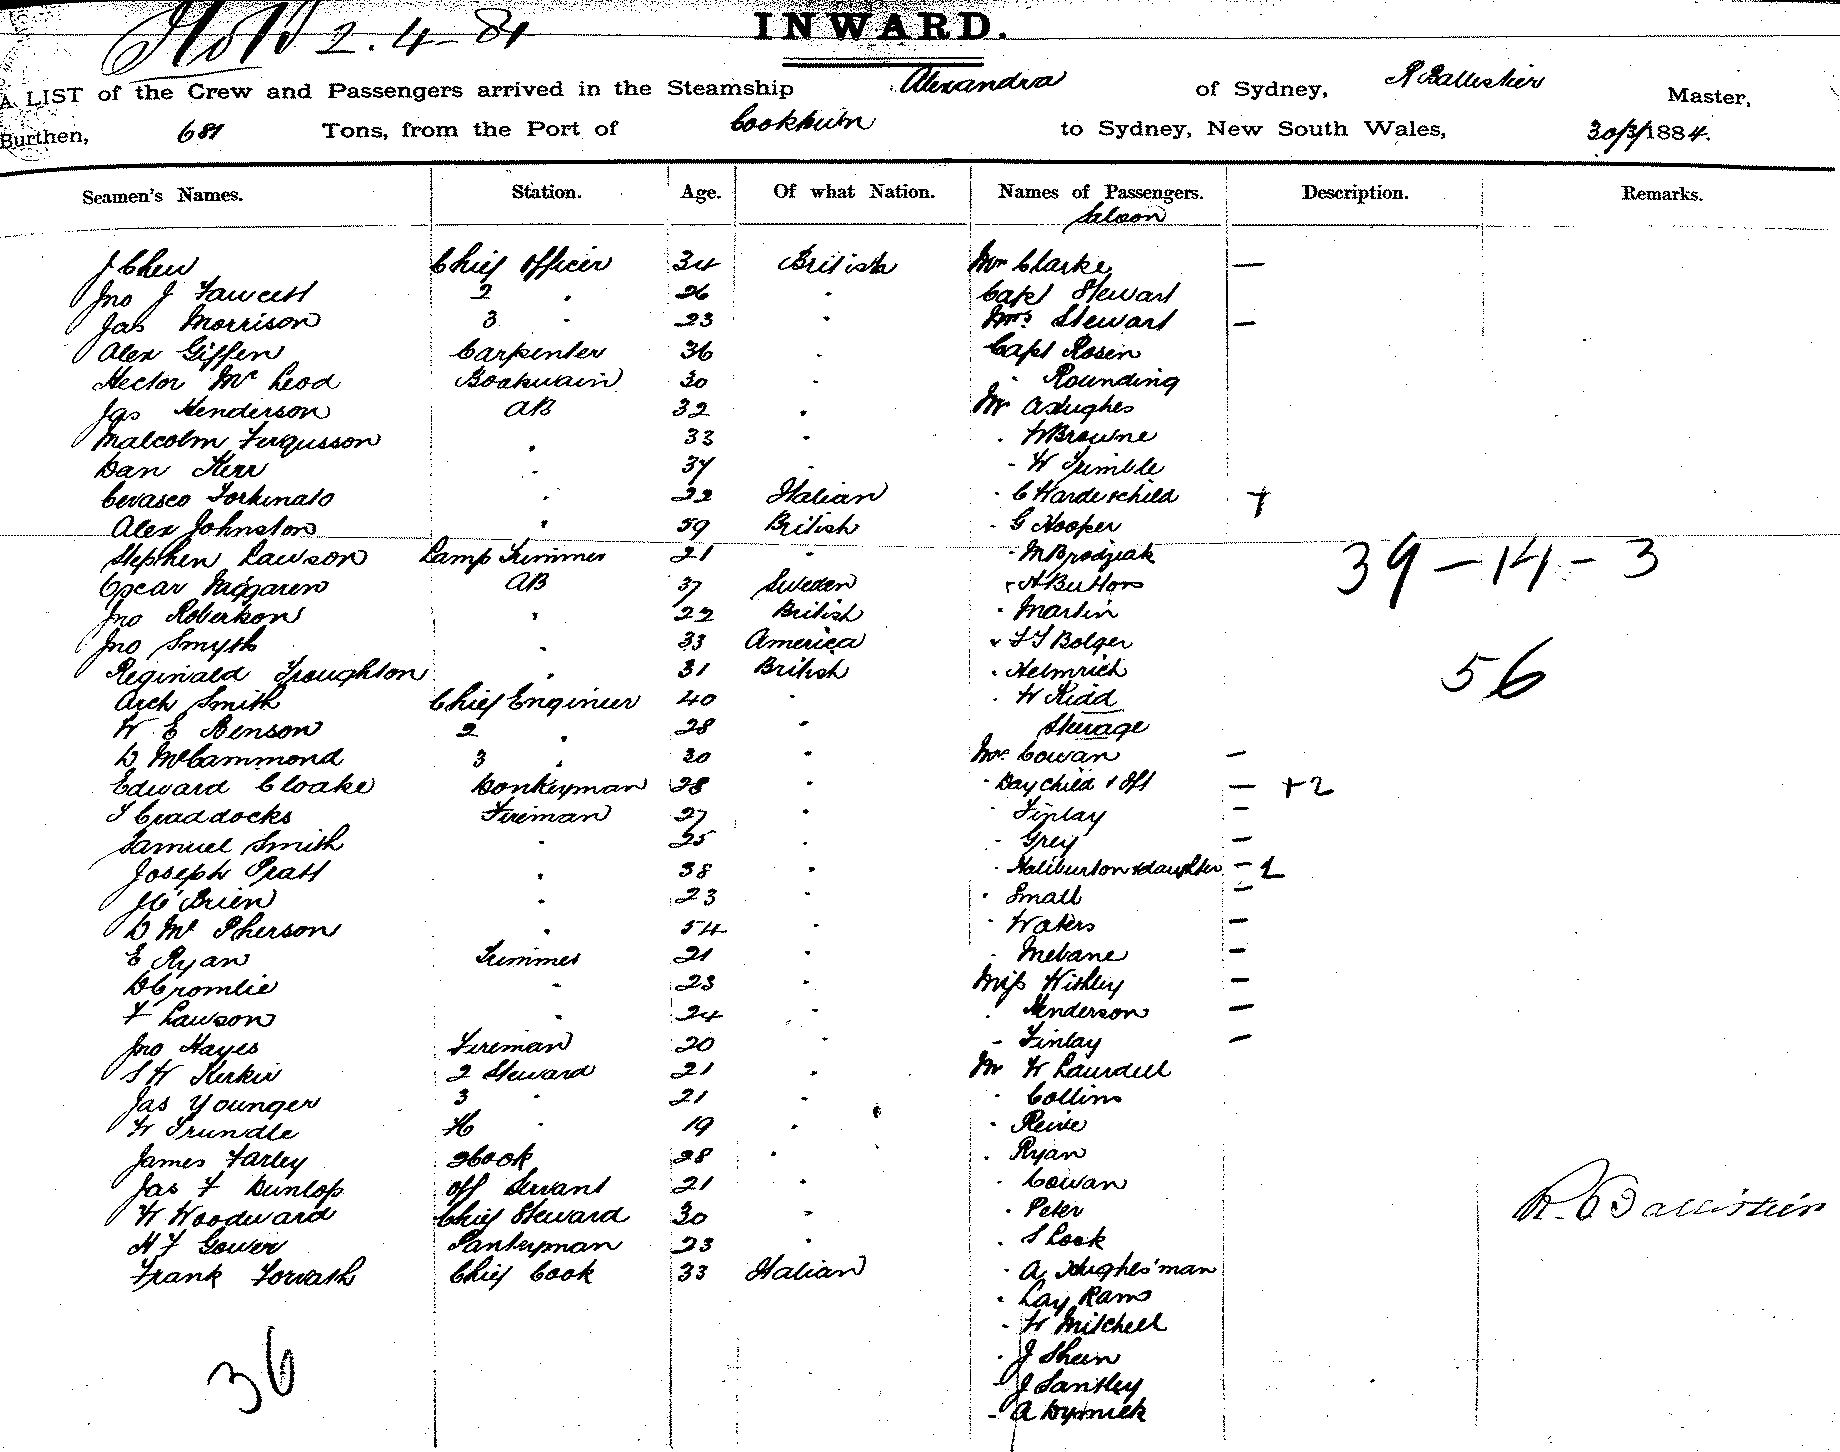 2.4-84
INWARD.
A LIST of the Crew and Passengers arrived in the Steamship Alexandra of Sydney, R Ballistier Master,
Burthen, 681 Tons, from the Port of Cooktown to Sydney, New South Wales, 30/3/1884.
Seamen's Names. Station. Age. Of what Nation. Names of Passengers. Description. Remarks.
Saloon
J Chew Chief Officer 34 British Mrs Clarke —
Jno J Fawcett 2 " 26 " Capt Stewart
Jas Morrison 3 " 23 " Mrs Stewart —
Alex Giffen Carpenter 36 " Capt Rosen
Hector McLeod Boatswain 30 " " Rounding
Jas Henderson AB 32 " Mr A Hughes
Malcolm Fergusson " 33 " " W Browne
Dan Kerr " 34 " " W Trimble
Cevasco Fortunato " 22 Italian " C Wardeschild +
Alex Johnston " 59 British " G Hooper
Stephen Lawson Lamp Trimmer 21 " " M Brodziak
Oscar AB 37 Sweden " A Button 39-14-3
Jno Robertson " 22 British " Martin
Jno Smyth " 33 America " F J Bolger
Reginald Troughton " 31 British " Helmrich 56
Arch Smith Chief Engineer 40 " " W Kidd
W E Benson 2 " 28 " Steerage
D McCammond 3 " 30 " Mrs Cowan —
Edward Cloake Donkeyman 28 " " Day child & Sft — +2
T Craddocks Fireman 27 " " Finlay —
Samuel Smith " 25 " " Grey —
Joseph Pratt " 38 " " Haliburton & daughter — 1
J O'Brien " 23 " " Small —
D McPherson " 54 " " Waters —
E Ryan Trimmer 21 " " Mebane —
D Cromlie " 23 " Miss Wishey —
F Lawson " 24 " " Henderson —
Jno Hayes Fireman 20 " " Finlay —
S W Kirkie 2 Steward 21 " Mr W
Jas Younger 3 " 21 " " Collins
W Trundle 4 " 19 " " Reive
James Farley 2 Cook 28 " " Ryan
Jas F Dunlop off Servant 21 " " Cowan
W Woodward Chief Steward 30 " " Peter R. Ballistier
H F Gower Pantryman 23 " " S Look
Frank Forvath Chief Cook 33 Italian " A Hughes' man
" Lay Rams
" W Mitchell
36 " J Shein
" J Santley
" A Dymick